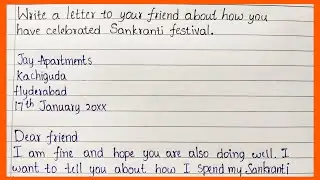 Write a letter to your friend about how you
have celebrated Sankranti festival.
Jay Apartments
Kachiguda
Hyderabad
17th January 20xx
Dear friend
I am fine and hope you are also doing well. I
want to tell you about how I spend my Sankranti